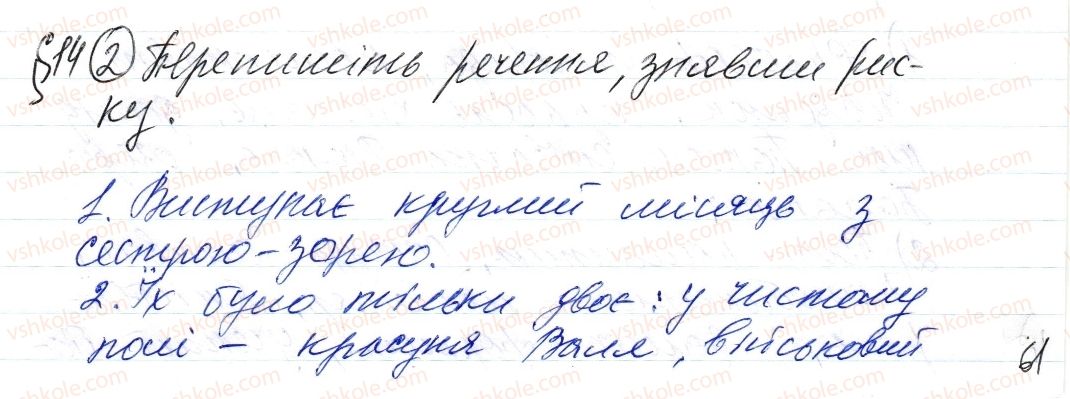 §14 2 Перепишіть речення, знявши рис-
ку.
1. Виступає круглий місяць з
сестрою-зорею.
2. Їх було тільки двоє: у чистому
полі - красуня Валя, військовий
61